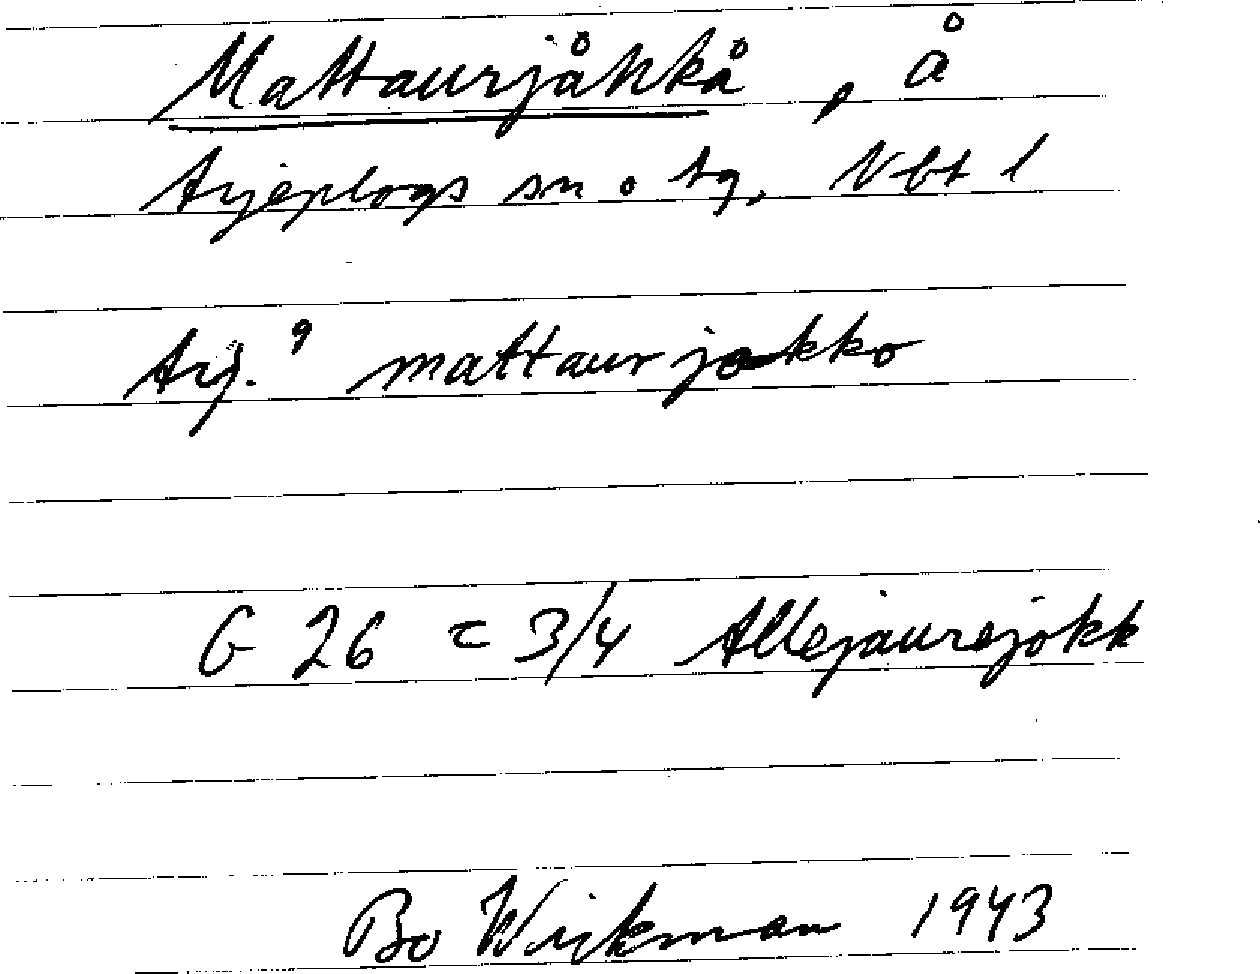 Mattaurjåhkå, å
Arjeplogs sn o. tg, Vbt l
Arj. 9 mattaurjokko
G 26 = 3/4 Allejaurejokk
Bo Wickman 1943